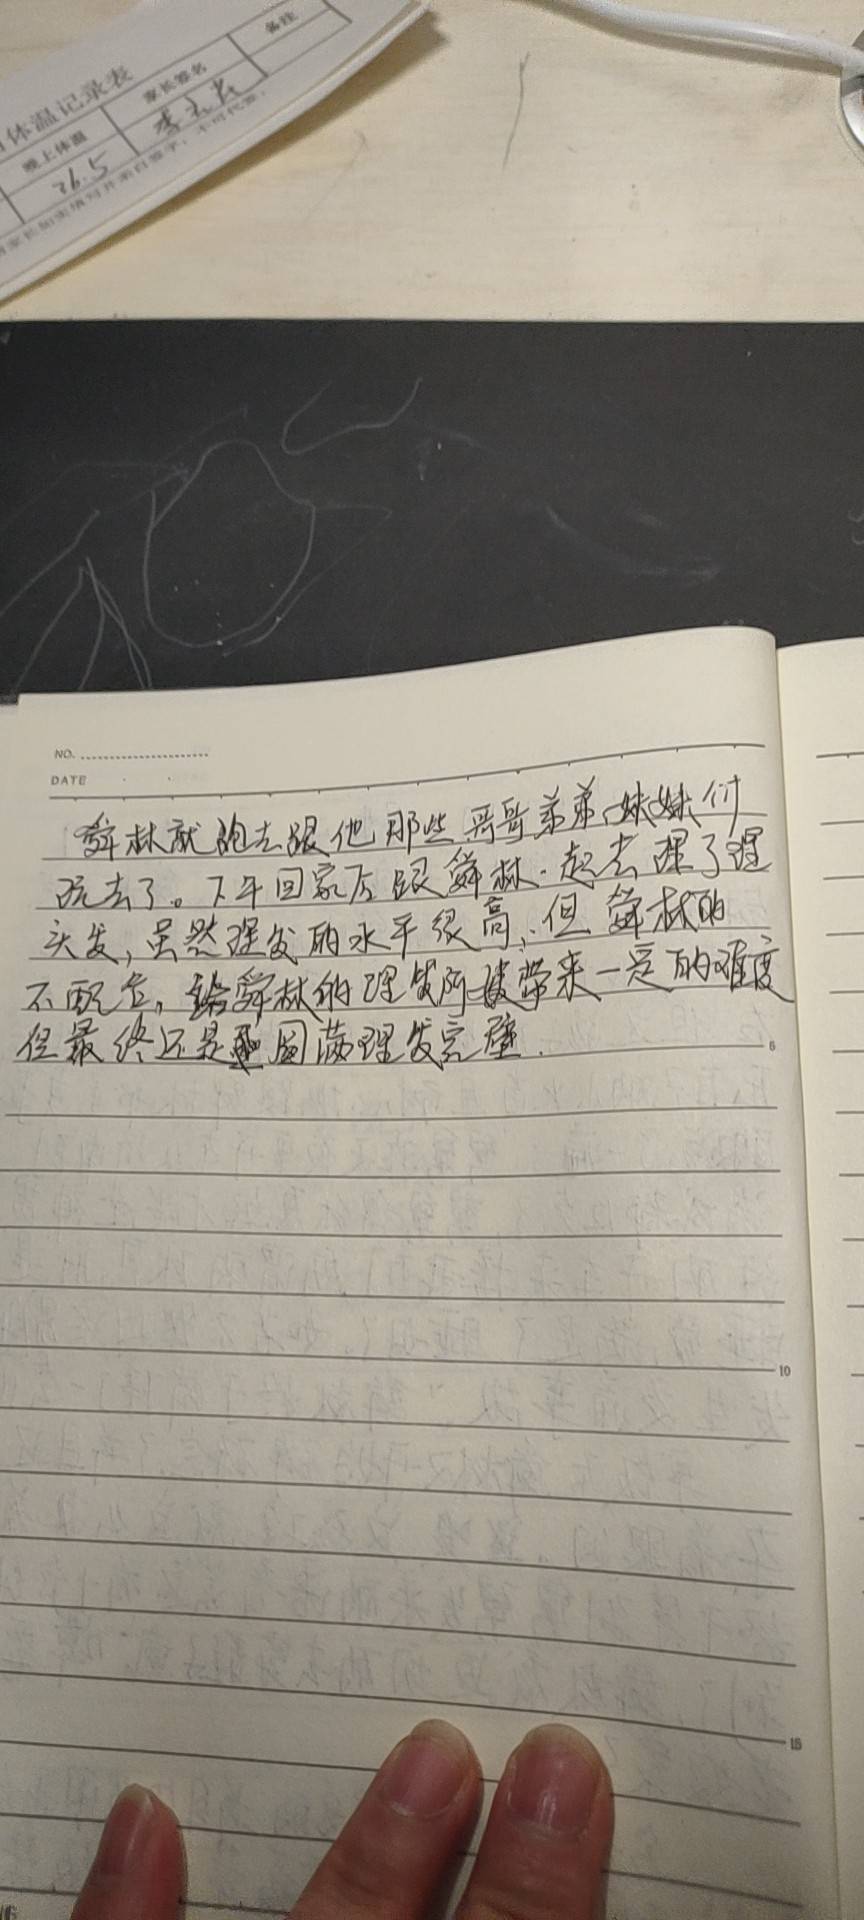 体温记录表
晚上体温 家长签名 备注
36.5
NO.
DATE
舜林就跑去跟他那些哥哥弟弟、妹妹们
玩去了。下午回家后跟舜林一起去理了理
头发,虽然理发的水平很高,但舜林的
不配合,给舜林的理发师傅带来一定的难度
但最终还是圆满理发完璧.
5
10
15